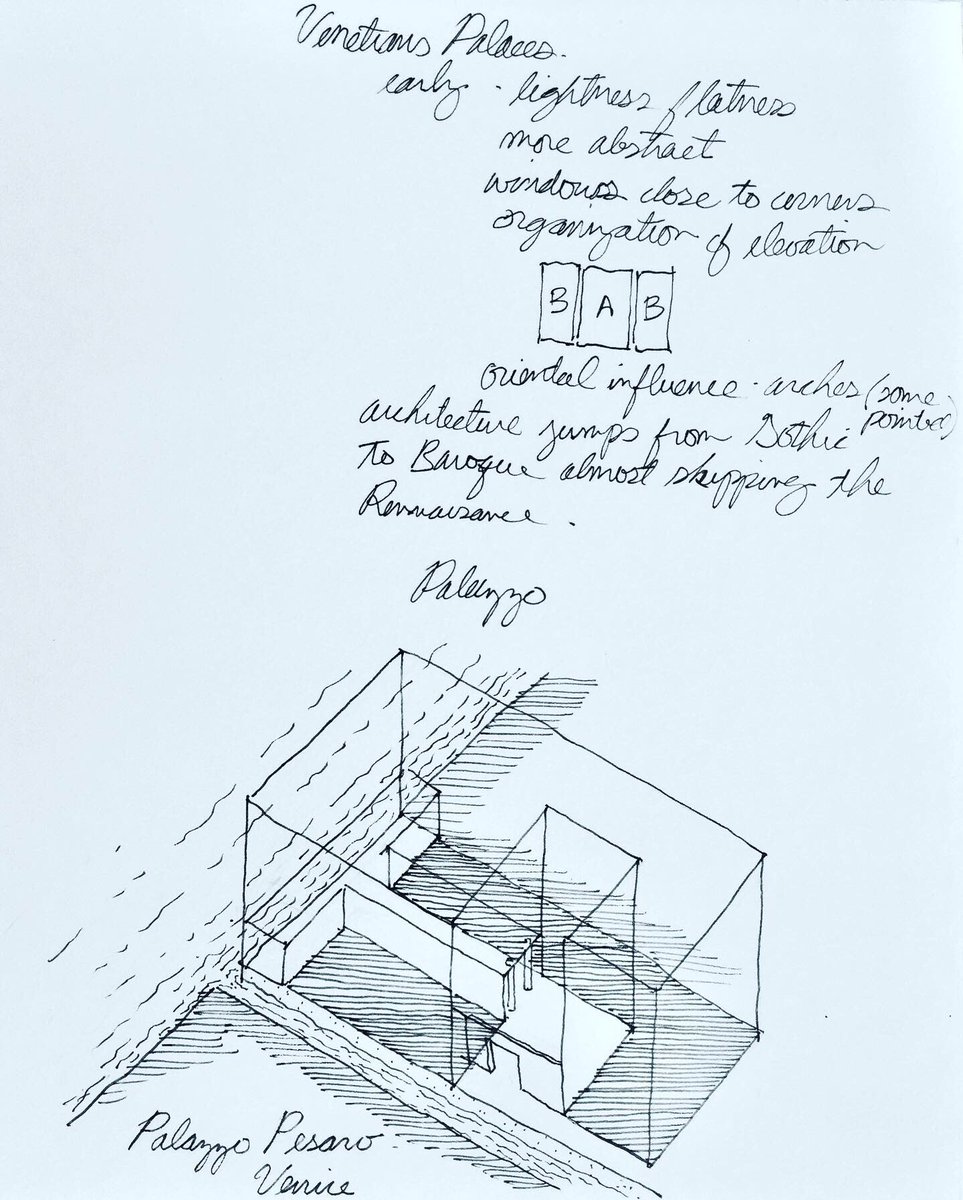 Venetians Palaces.
early - lightness flatness
more abstract
windows close to corners
organization of elevation
B A B
oriental influence - arches (some pointed)
architecture jumps from Gothic
to Baroque almost skipping the
Rennaisance.
Palazzo
Palazzo Pesaro
Venice